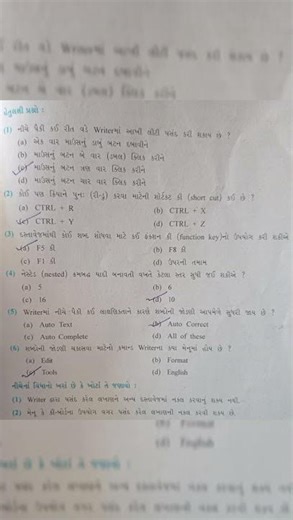 હેતુલક્ષી પ્રશ્નો :
(1) નીચે પૈકી કઈ રીત વડે Writerમાં આખી લીટી પસંદ કરી શકાય છે ?
(a) એક વાર માઉસનું ડાબું બટન દબાવીને
(b) માઉસનું બટન બે વાર (ડબલ) ક્લિક કરીને
(c) માઉસનું બટન ત્રણ વાર ક્લિક કરીને
(d) માઉસનું બટન ચાર વાર ક્લિક કરીને
(2) કોઈ પણ ક્રિયાને પુનઃ (રી-ડૂ) કરવા માટેની શૉર્ટકટ કી (short cut) કઈ છે ?
(a) CTRL + R (b) CTRL + X
(c) CTRL + Y (d) CTRL + Z
(3) દસ્તાવેજમાંથી કોઈ શબ્દ શોધવા માટે કઈ ફંક્શન કી (function key)નો ઉપયોગ કરી શકીએ
(a) F5 કી (b) F8 કી
(c) F1 કી (d) ઉપરની તમામ
(4) નેસ્ટેડ (nested) ક્રમબદ્ધ યાદી બનાવતી વખતે કેટલા સ્તર સુધી જઈ શકીએ ?
(a) 5 (b) 6
(c) 16 (d) 10
(5) Writerમાં નીચે પૈકી કઈ લાક્ષણિકતાને કારણે શબ્દોની જોડણી આપમેળે સુધરી જાય છે ?
(a) Auto Text (b) Auto Correct
(c) Auto Complete (d) All of these
(6) શબ્દોની જોડણી ચકાસવા માટેનો કમાન્ડ Writerના ક્યા મેનુમાં હોય છે ?
(a) Edit (b) Format
(c) Tools (d) English
નીચેનાં વિધાનો ખરાં છે કે ખોટાં તે જણાવો :
(1) Writer દ્વારા પસંદ કરેલ લખાણને અન્ય દસ્તાવેજમાં નકલ કરવાનું શક્ય નથી.
(2) મેનુ કે કી-બોર્ડના ઉપયોગ વગર પસંદ કરેલ લખાણની નકલ કરવી શક્ય છે.